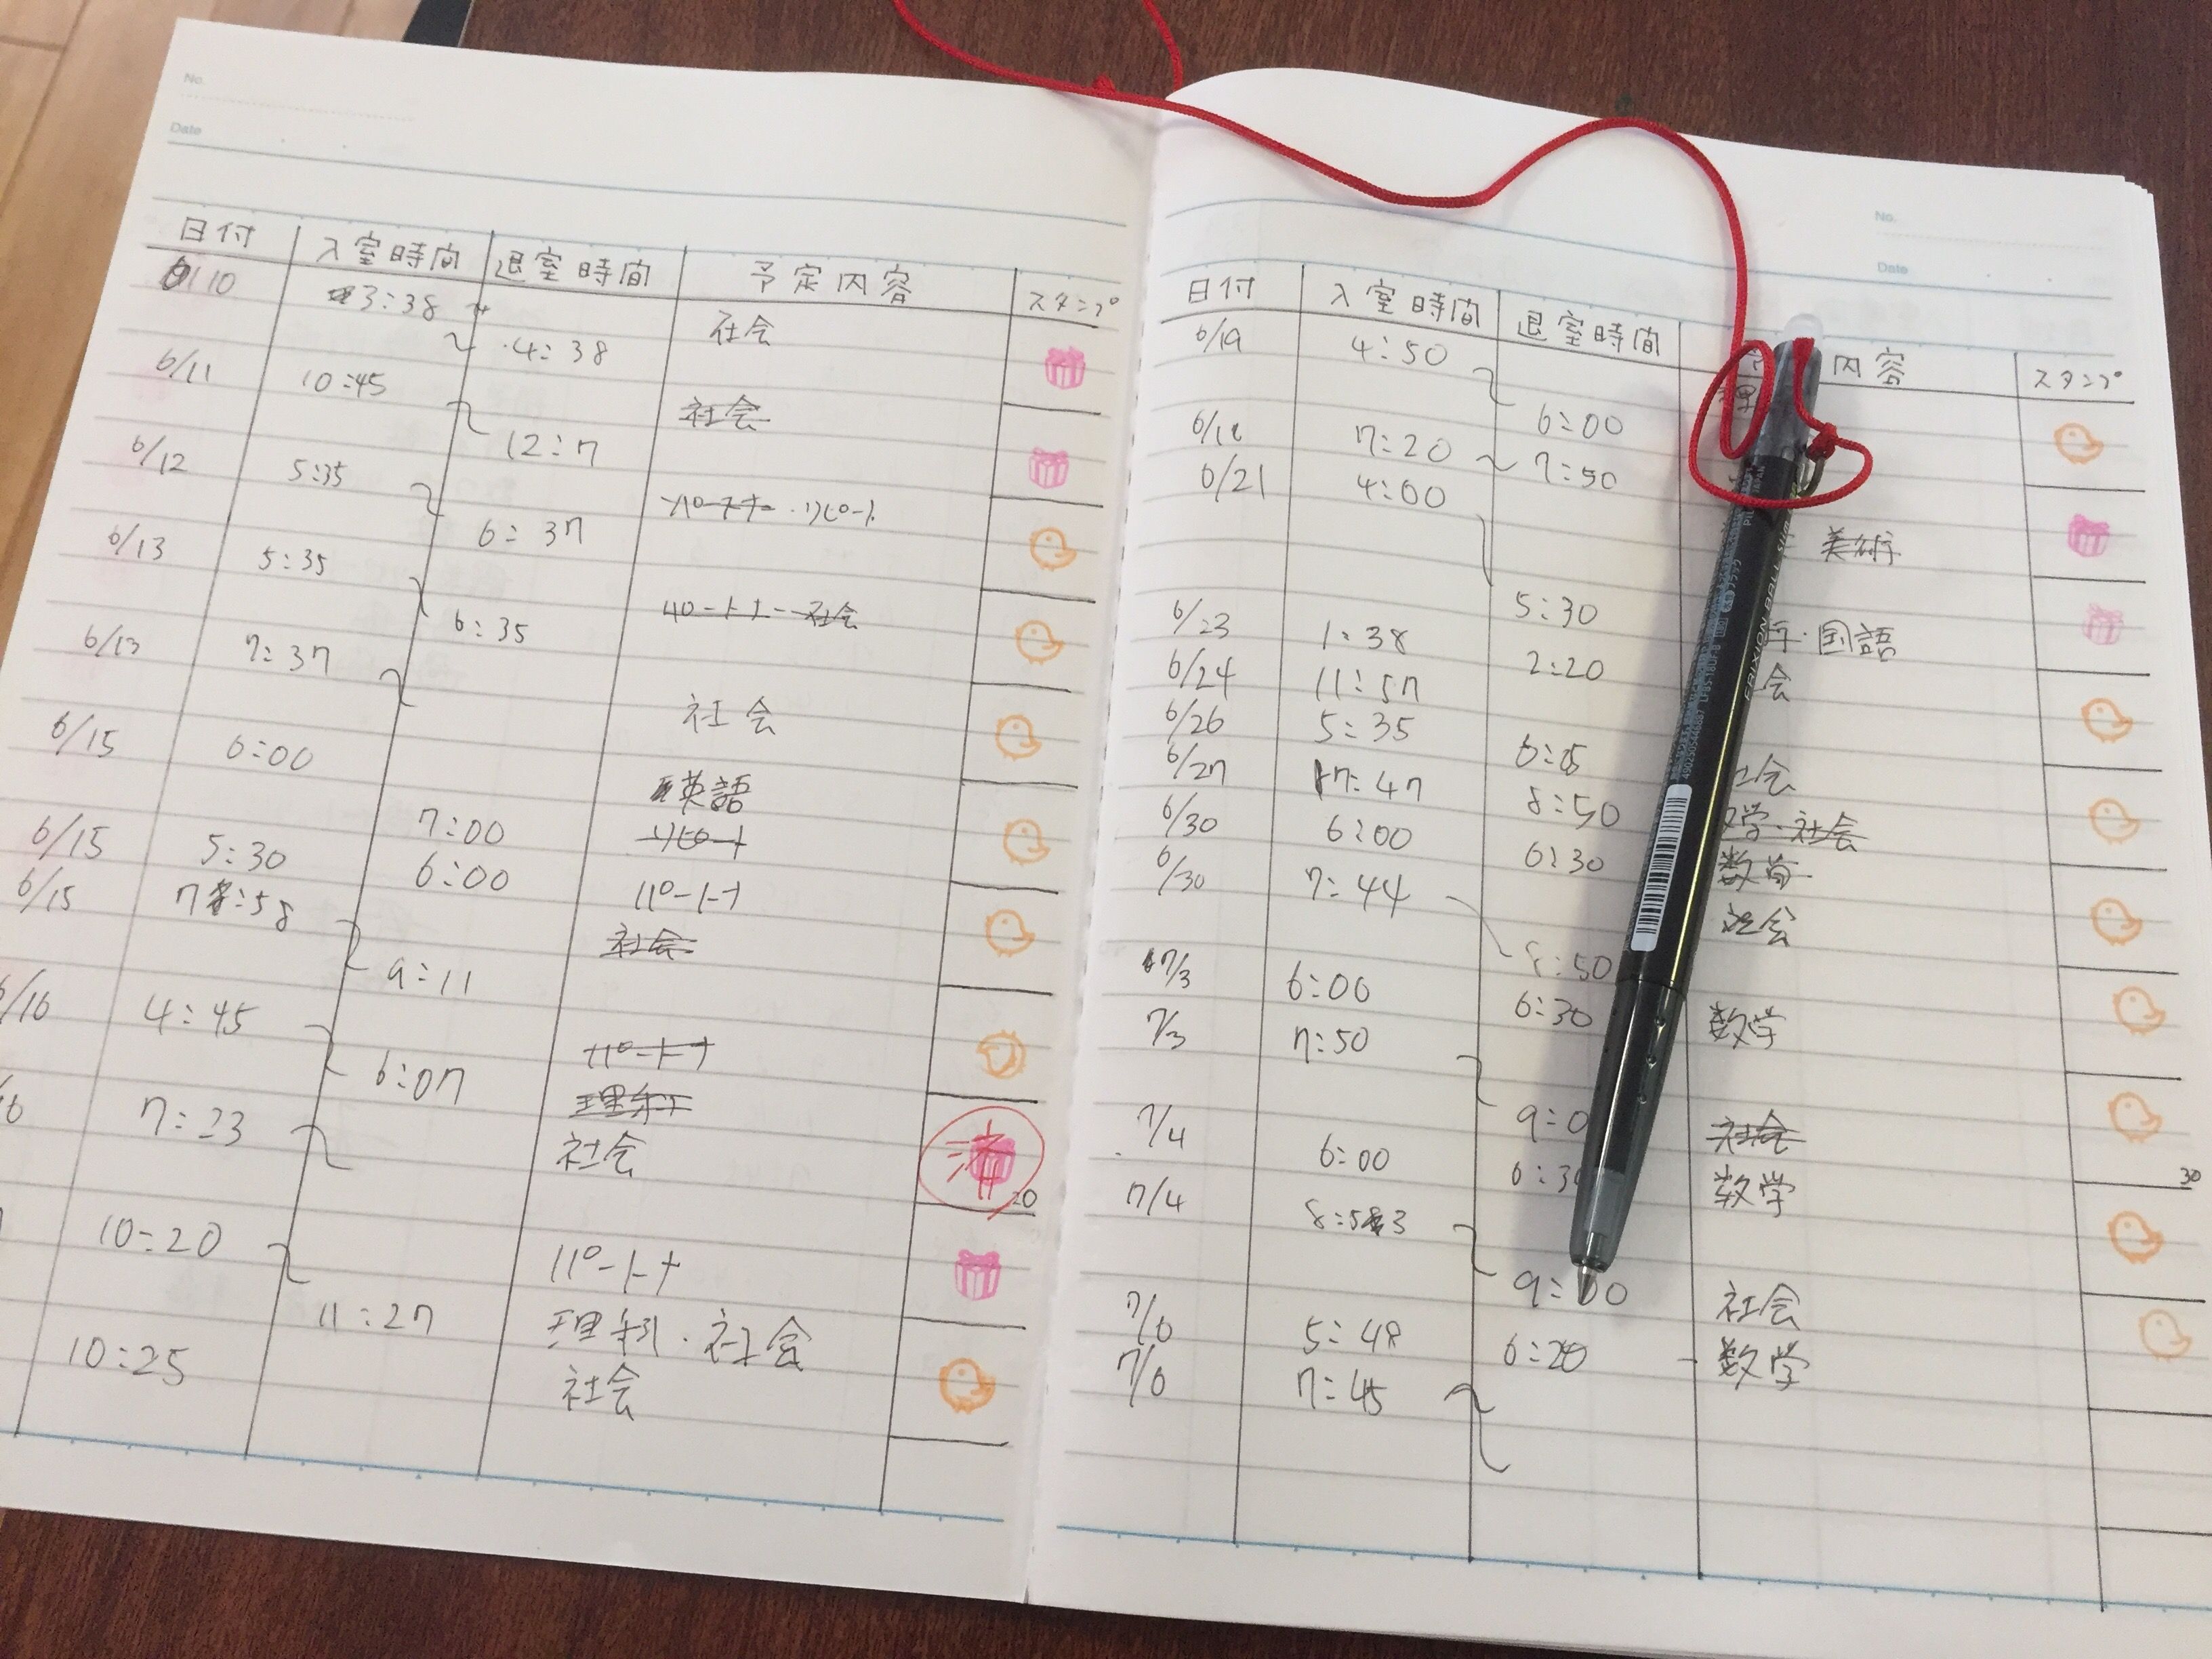 No.
Date
日付 入室時間 退室時間 予定内容 スタンプ
6/10 3:38 社会
4:38
6/11 10:45 社会
12:7
6/12 5:35 パートナー・リピート
6:37
6/13 5:35 社会
6:35
6/13 7:37
社会
6/15 6:00
英語
7:00 リピート
6/15 5:30 6:00 パートナ
6/15 7:58 社会
9:11
6/16 4:45 パートナ
6:07 理科
7:23 社会
済
20
10:20 パートナ
11:27 理科・社会
10:25 社会
No.
Date
日付 入室時間 退室時間 内容 スタンプ
6/19 4:50 理
6:00
7:20 7:50
6/21 4:00
美術
5:30
6/23 1:38 2:20 国語
6/24 11:57 会
6/26 5:35 6:05 社会
6/27 7:47 8:50 数学・社会
6/30 6:00 6:30 数学
6/30 7:44 社会
8:50
7/3 6:00 6:30 数学
7/3 7:50
9:0 社会
7/4 6:00 6:30 数学
30
7/4 8:53
9:00 社会
7/6 5:48 6:20 数学
7/6 7:45
PILOT JAPAN
FRIXION BALL SLIM
LFBS-18UF-B
4902505448887